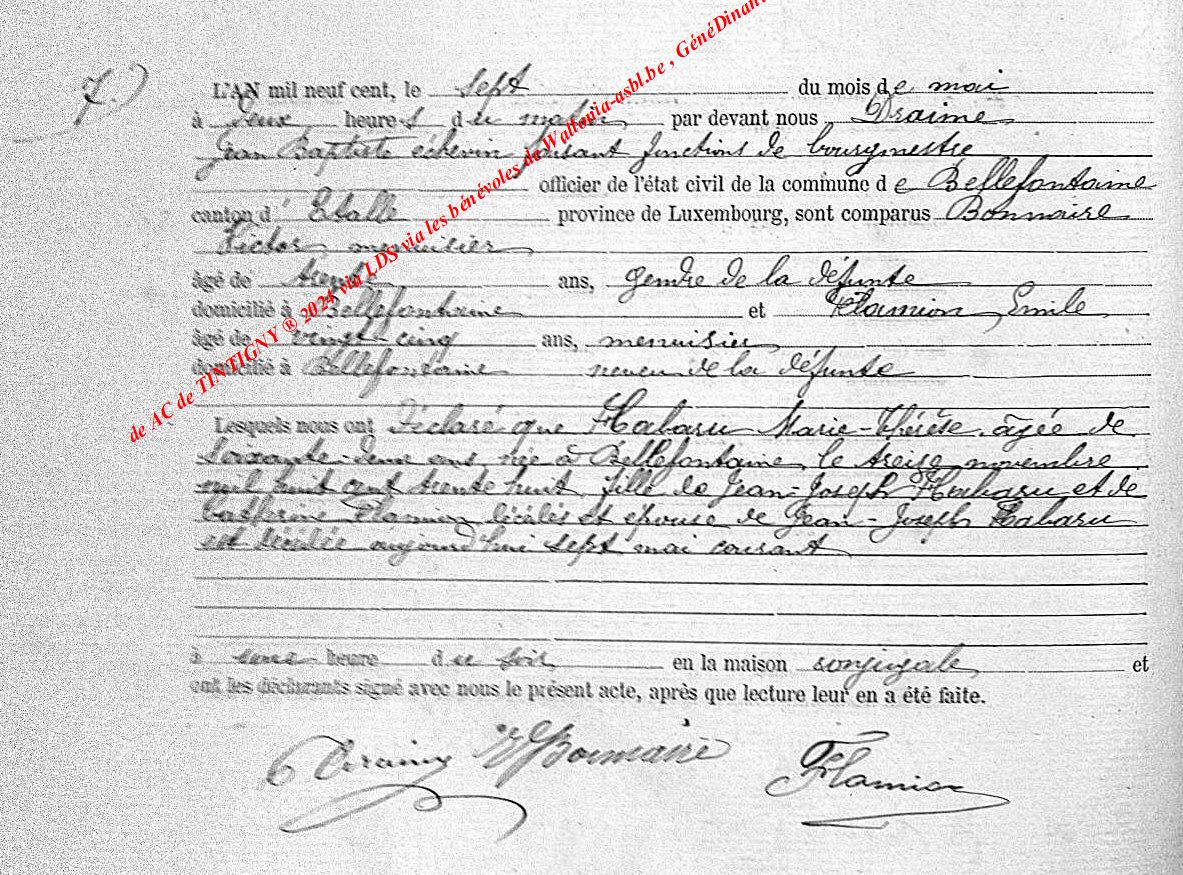 7.)
L'AN mil neuf cent, le sept du mois de mai
à deux heures du matin par devant nous Draime
Jean Baptiste échevin faisant fonctions de bourgmestre
officier de l'état civil de la commune de Bellefontaine
canton d'Etalle province de Luxembourg, sont comparus Bonnaire
Victor menuisier
âgé de trente ans, gendre de la défunte
domicilié à Bellefontaine et Flamion Emile
âgé de vingt-cinq ans, menuisier
domicilié à Bellefontaine neveu de la défunte
Lesquels nous ont déclaré que Habaru Marie-Thérèse, âgée de
soixante-deux ans née à Bellefontaine, le treize novembre
mil huit cent trente huit, fille de Jean-Joseph Habaru et de
Catherine Flamion décédés et épouse de Jean-Joseph Habaru
est décédée aujourd'hui sept mai courant
à heure du soir en la maison conjugale et
ont les déclarants signé avec nous le présent acte, après que lecture leur en a été faite.
Draime VBonnaire EFlamion
de AC de TINTIGNY ® 2024 via LDS via les bénévoles de Wallonia-asbl.be , GénéDinant